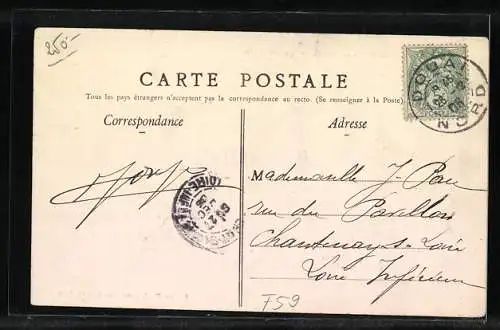 250.-
CARTE POSTALE
Tous les pays étrangers n'acceptent pas la correspondance au recto. (Se renseigner à la Poste).
Correspondance
Adresse
DOUAI
NORD
LOIRE-INF
Mademoiselle J.
rue du Pavillon
Chantenay s. Loire
Loire Inférieure
F59